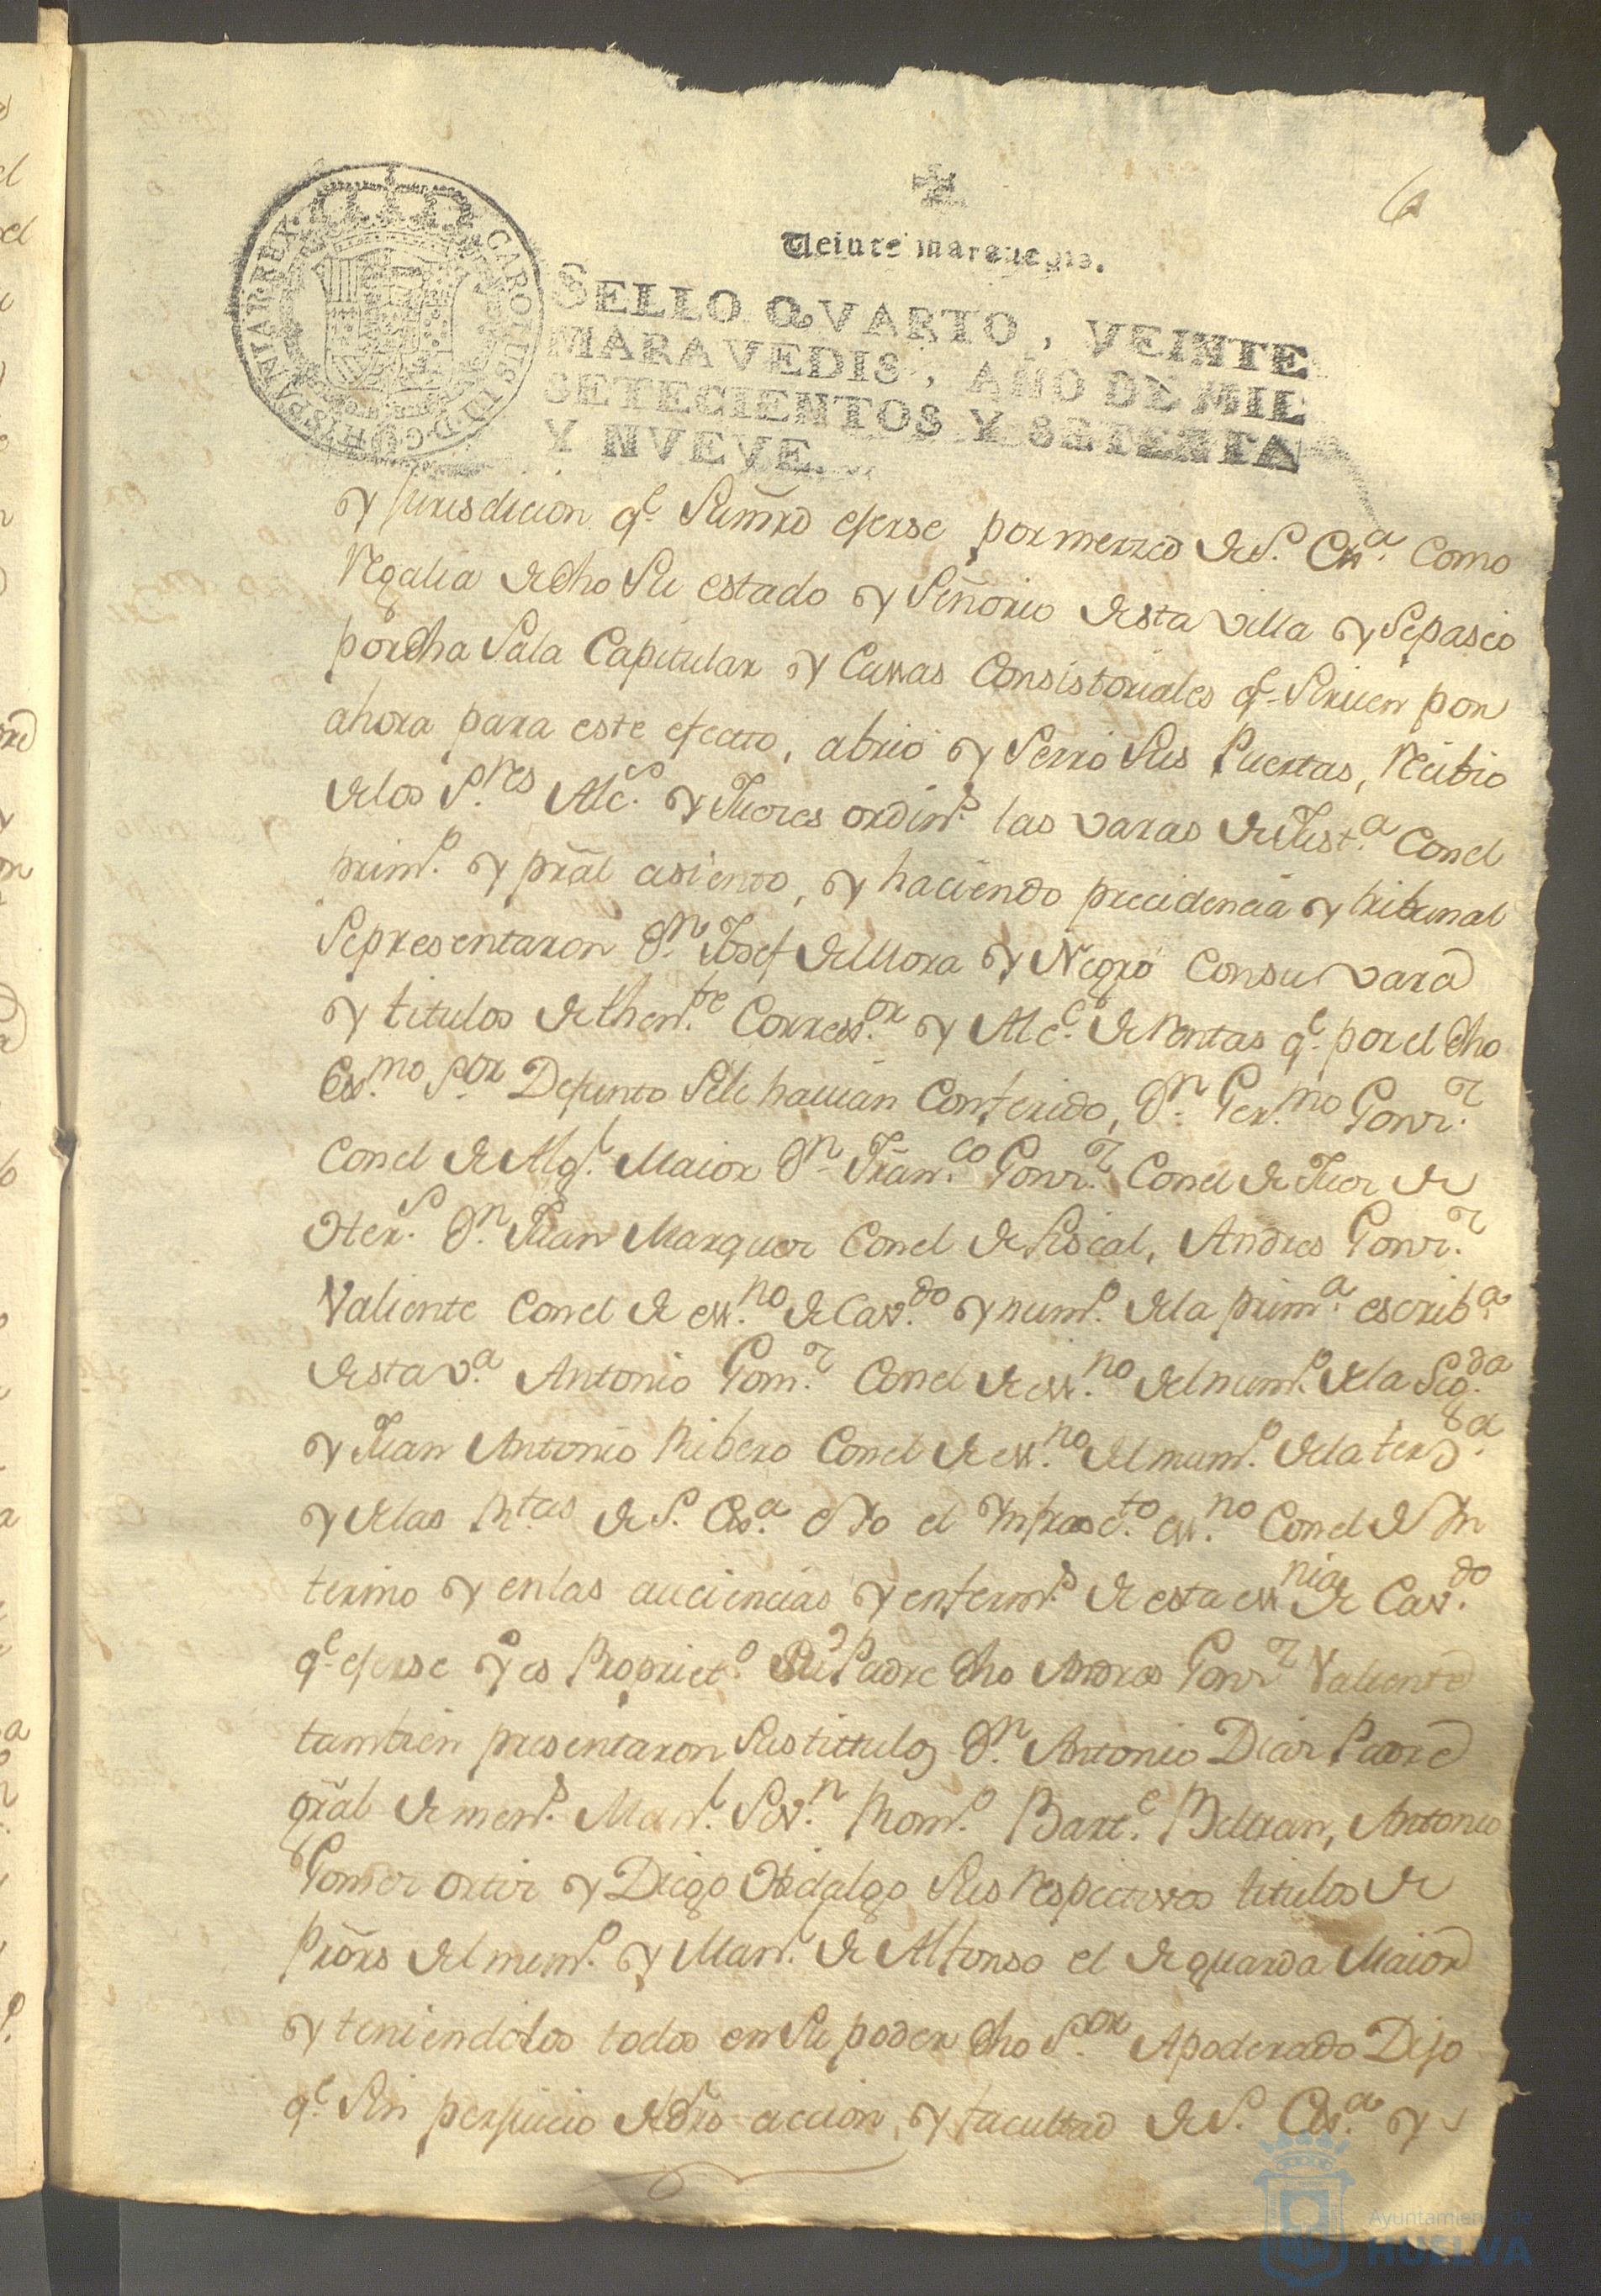 6
Veinte maravedis.
CAROLUS III D G HISPANIAR REX
SELLO QVARTO, VEINTE
MARAVEDIS, AÑO DE MIL
SETECIENTOS Y SETENTA
Y NVEVE.
y jurisdicion q.e exerse por merzed de S. Ex.a como
Regalia dedho su estado y Señorio desta villa y sepaseo
por dha Sala Capitular y Cassas Consistoriales q.e Siruen por
ahora para este efecto, abrio y Serró Sus Puertas, Recibio
delos S.res Alc.s y Jueces ordin.s las varas de Just.a Conel
prim.o y pral asiento, y haciendo precidencia y tribunal
Sepresentaron D.n Josef de Mora y Negro Consu vara
y titulos de then.te Correx.or y Alc.e de Rentas q.e por el dho
Ex.mo S.or Defunto Sele hauian Conferido, D.n Ger.mo Gonz.z
Conel de Alg.l Maior D.n Fran.co Gonz.z Conel de Juez de
D.n Juan Marquez Conel de Fiscal, Andres Gonz.z
Valiente Conel de ess.no de Cav.do y num.o dela prim.a escrib.a
desta v.a Antonio Gom.z Conel de ess.no del num.o dela Seg.da
y Juan Antonio Ribero Conel de ess.no del num.o dela
y delas R.tas de S. Ex.a e Yo el Infrasc.to ess.no Conel de In
terino y enlas auciencias y enferm.s de esta ess.nia de Cav.do
q.e exerse y es Propriet.o Padre dho Andres Gonz.z Valiente
tambien presentaron Sus tittulos D.n Antonio Diaz Padre
gral de men.s Man.l Rom.o Bart.e Beltran, Antonio
Gomez ortiz y Diego Hidalgo Sus Respectivos titulos de
Prors del num.o y Man.l de Alfonso el de guarda Maior
y teniendolos todos en Su poder dho S.or Apoderado Dijo
q.e Sin perjuicio accion, y facultad de S. Ex.a y
Ayuntamiento de
HUELVA